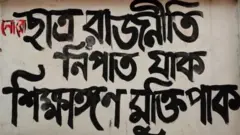 নোংরা
ছাত্র রাজনীতি
নিপাত যাক
শিক্ষাঙ্গণ মুক্তিপাক